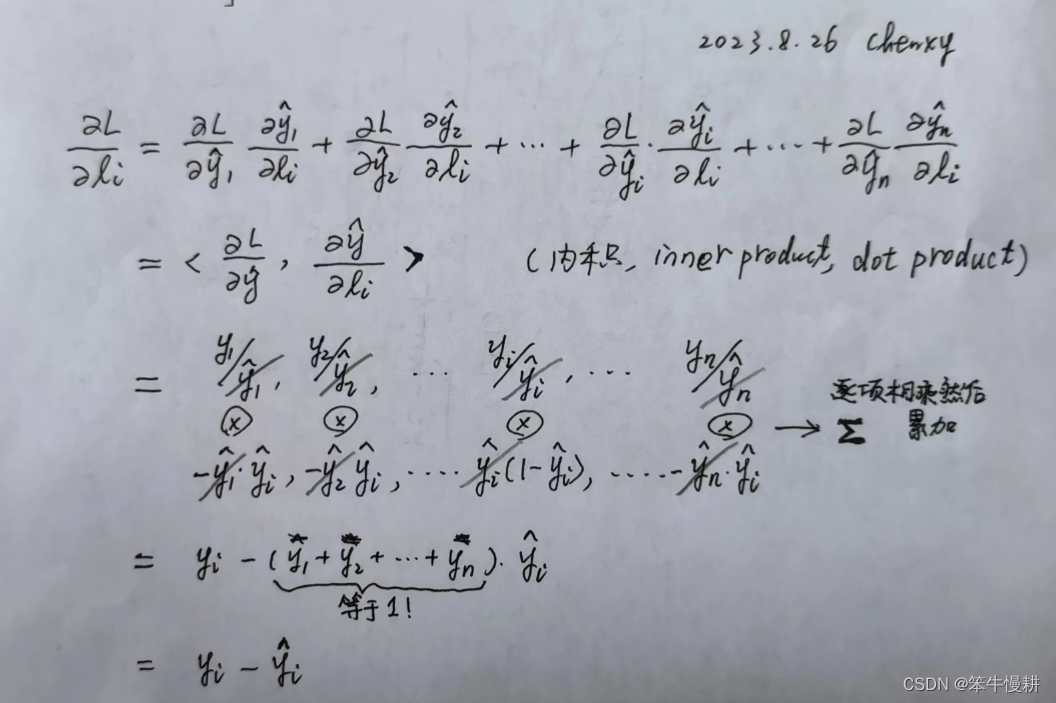 2023.8.26 chenxy
∂L/∂lᵢ = ∂L/∂ŷ₁ ∂ŷ₁/∂lᵢ + ∂L/∂ŷ₂ ∂ŷ₂/∂lᵢ + ··· + ∂L/∂ŷᵢ · ∂ŷᵢ/∂lᵢ + ··· + ∂L/∂ŷₙ ∂ŷₙ/∂lᵢ
= < ∂L/∂ŷ, ∂ŷ/∂lᵢ > (内积, inner product, dot product)
= y₁/ŷ₁, y₂/ŷ₂, ··· yᵢ/ŷᵢ, ··· yₙ/ŷₙ
ⓧ ⓧ ⓧ ⓧ → Σ 逐项相乘然后累加
-ŷ₁·ŷᵢ, -ŷ₂ŷᵢ, ···· ŷᵢ(1-ŷᵢ), ····· -ŷₙ·ŷᵢ
= yᵢ - (y₁ + y₂ + ··· + yₙ)· ŷᵢ
等于1!
= yᵢ - ŷᵢ
CSDN @笨牛慢耕